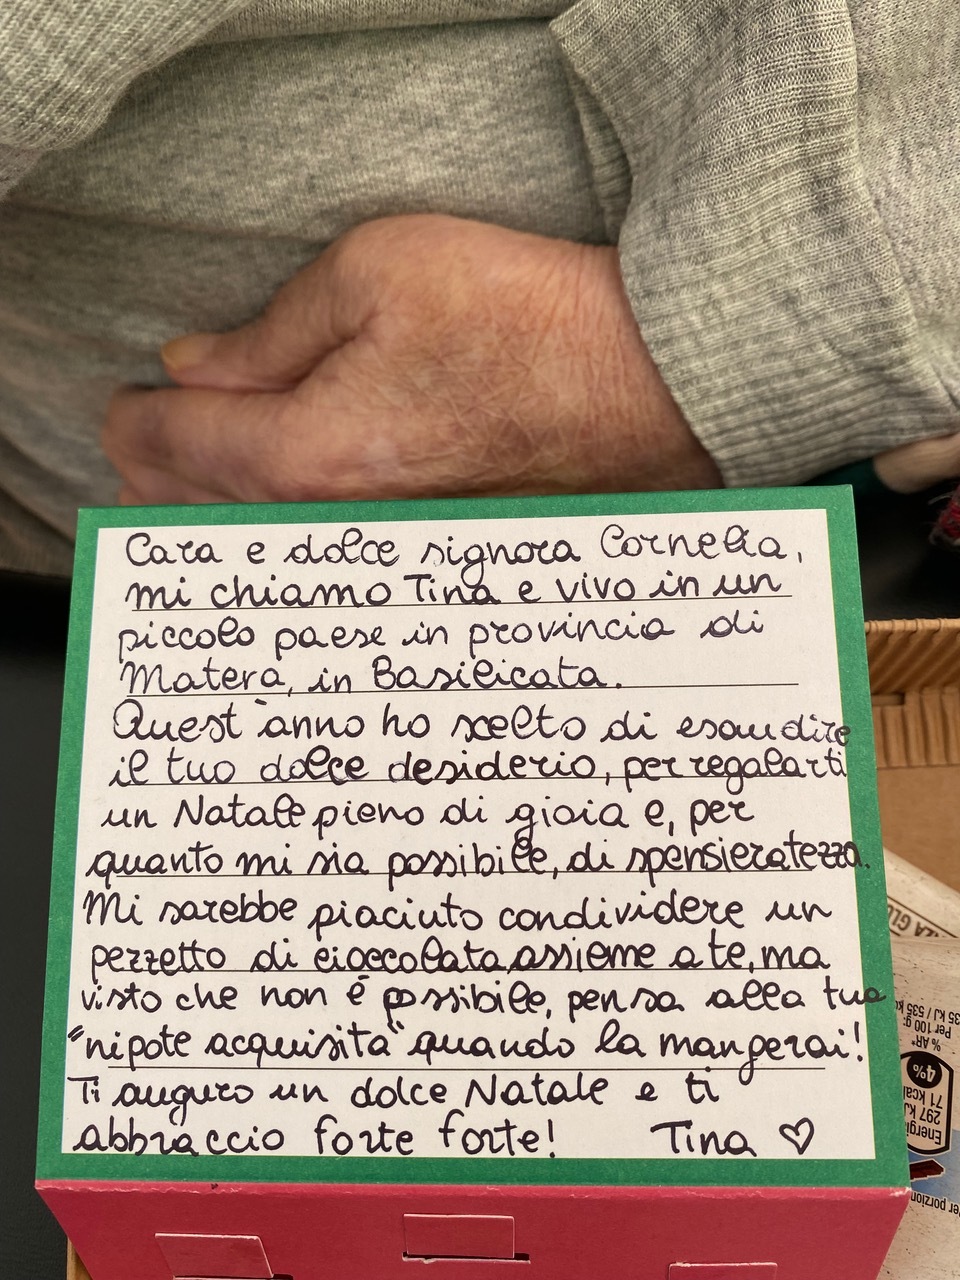 Cara e dolce signora Cornelia,
mi chiamo Tina e vivo in un
piccolo paese in provincia di
Matera, in Basilicata.
Quest'anno ho scelto di esaudire
il tuo dolce desiderio, per regalarti
un Natale pieno di gioia e, per
quanto mi sia possibile, di spensieratezza.
Mi sarebbe piaciuto condividere un
pezzetto di cioccolata assieme a te, ma
visto che non è possibile, pensa alla tua
"nipote acquisita" quando la mangerai!
Ti auguro un dolce Natale e ti
abbraccio forte forte!
Tina ♡
ZA GLU
35 kJ / 535 kc
Per 100 g:
% AR*
4%
71 kcal
297 kJ
Energia
Per porzion